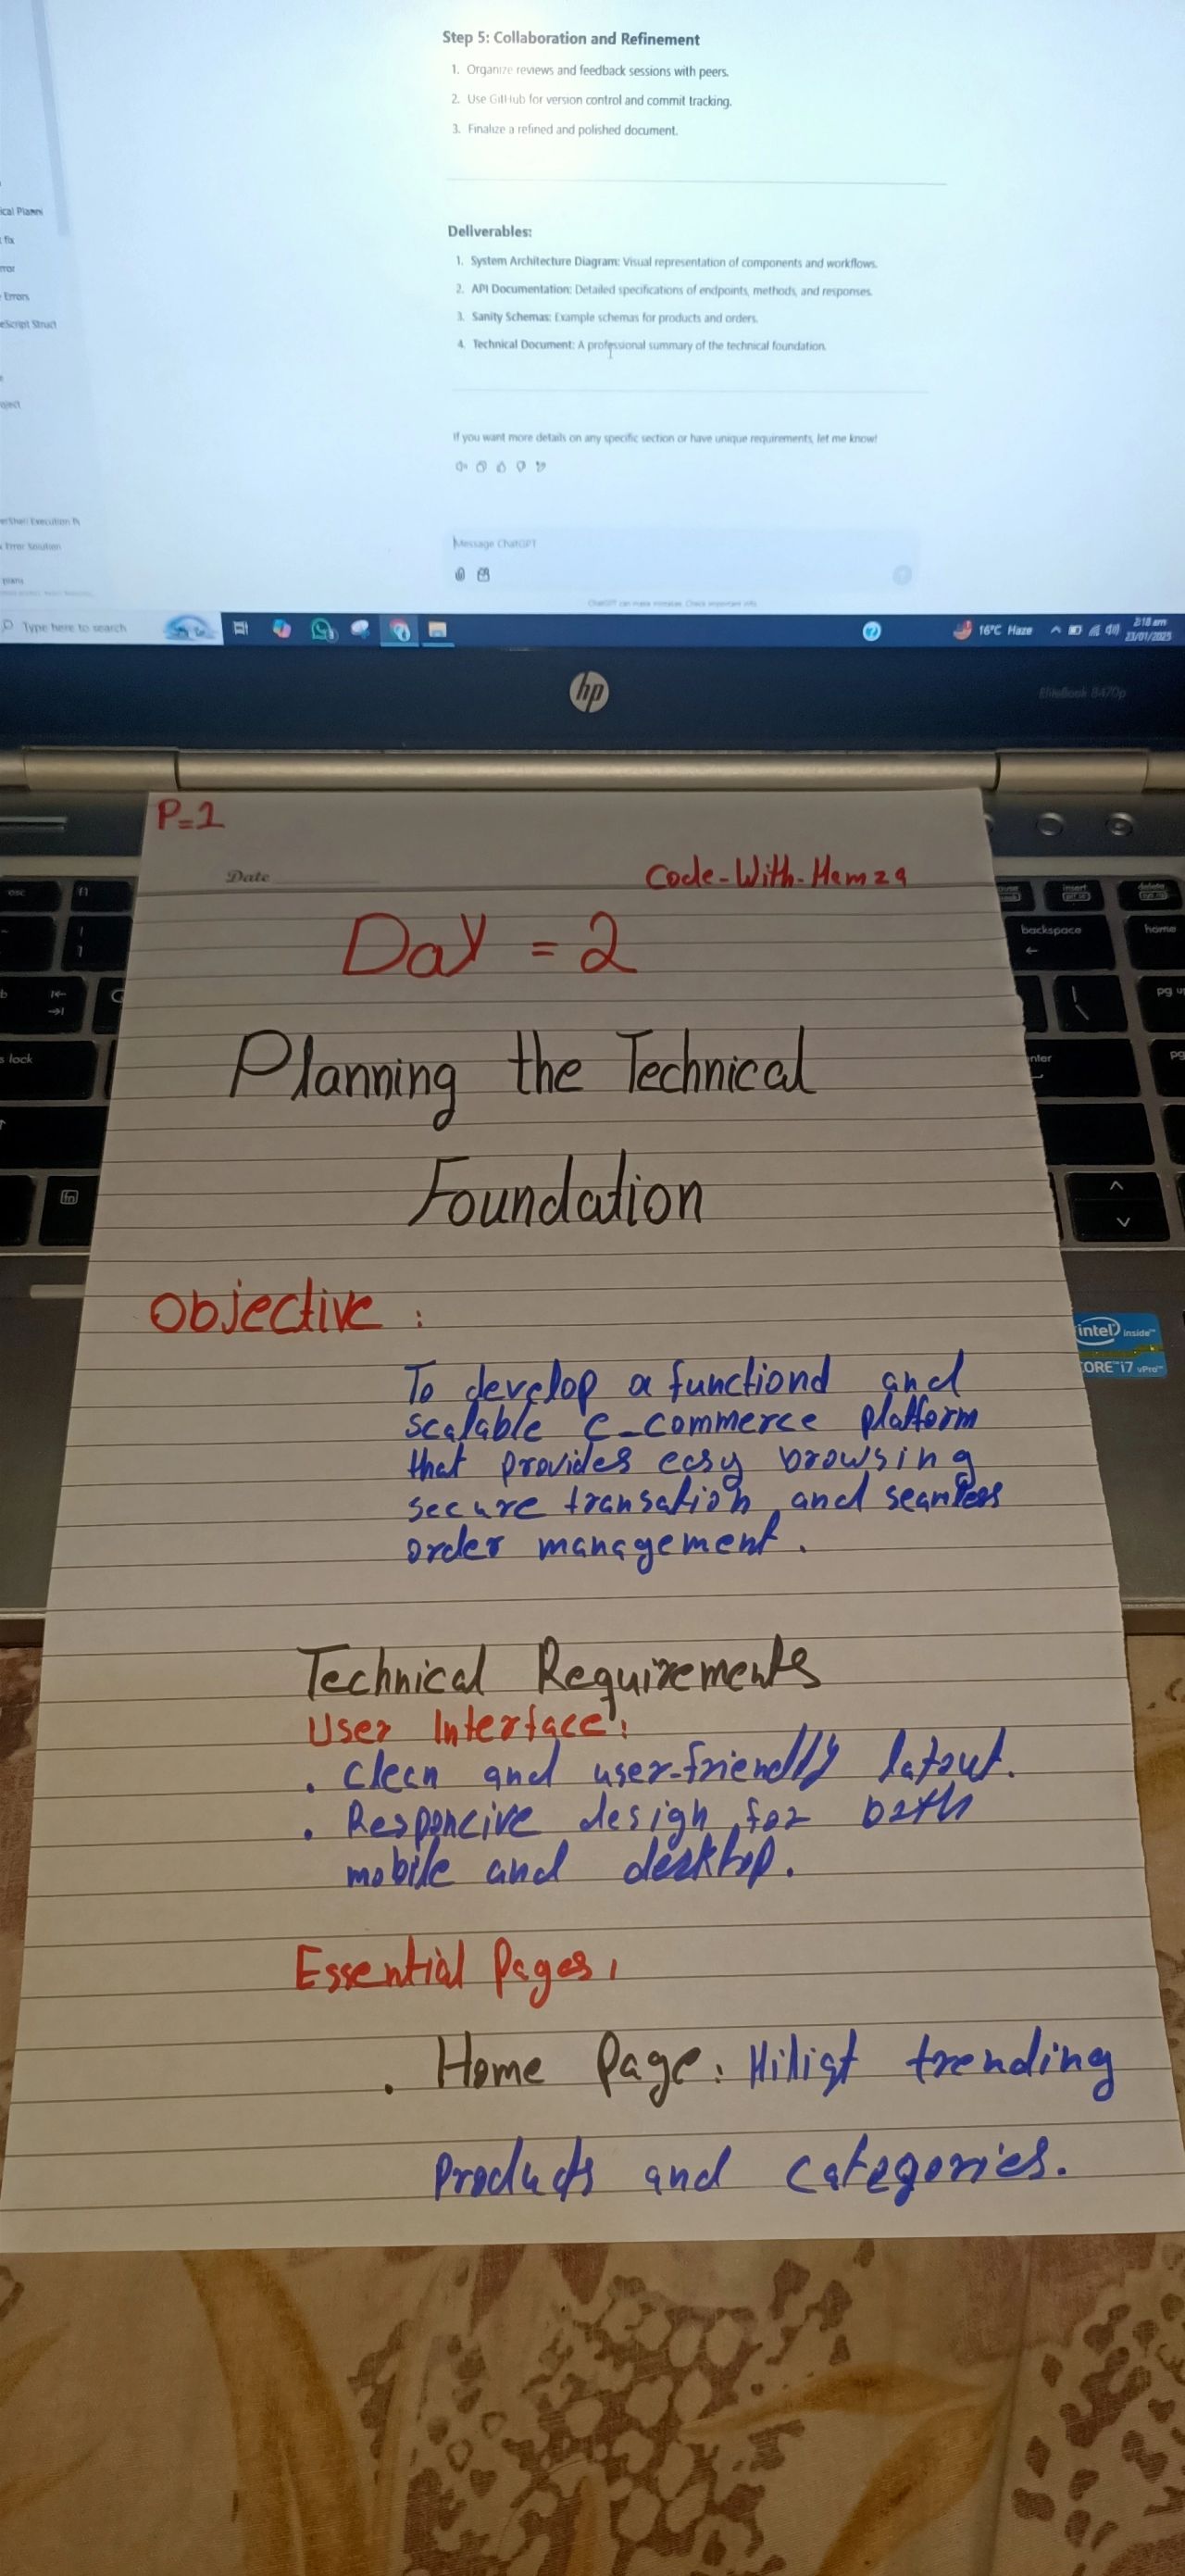 Step 5: Collaboration and Refinement
1. Organize reviews and feedback sessions with peers.
2. Use GitHub for version control and commit tracking.
3. Finalize a refined and polished document.
Deliverables:
1. System Architecture Diagram: Visual representation of components and workflows.
2. API Documentation: Detailed specifications of endpoints, methods, and responses.
3. Sanity Schemas: Example schemas for products and orders.
4. Technical Document: A professional summary of the technical foundation.
If you want more details on any specific section or have unique requirements, let me know!
ical Planni
fix
rror
Errors
eScript Struct
oject
erShell Execution
Error Solution
Message ChatGPT
ChatGPT can make mistakes. Check important info.
Type here to search
16°C Haze
2:18 am
23/01/2025
hp
EliteBook 8470p
P=1
Date
Code-With-Hamza
Day = 2
Planning the Technical
Foundation
Objective :
To develop a functiond and
scalable e-commerce platform
that provides easy browsing
secure transation, and seamless
order management.
Technical Requirements
User Interface:
. Clean and user-friendly latout.
. Responcive design for both
mobile and desktop.
Essential Pages:
. Home Page: Hiligt trending
Products and categories.
esc
f1
insert
delete
backspace
home
pg u
s lock
enter
pg
fn
intel inside
CORE i7 vPro